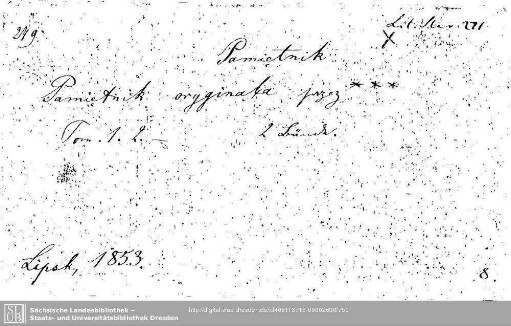 219. Lit. Slav. 271
Pamiętnik
Pamiętnik oryginała, przez ***
Tom. 1. 2. — 2 Bände.
Lipsk, 1853. 8.
SLUB Sächsische Landesbibliothek –
Staats- und Universitätsbibliothek Dresden